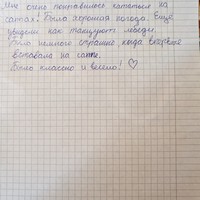 Мне очень понравилось кататься на
сапах. Была хорошая погода. Ещё
увидели как танцуют лебеди.
Было немного страшно когда впервые
вставала на сапе.
Было классно и весело! ♡